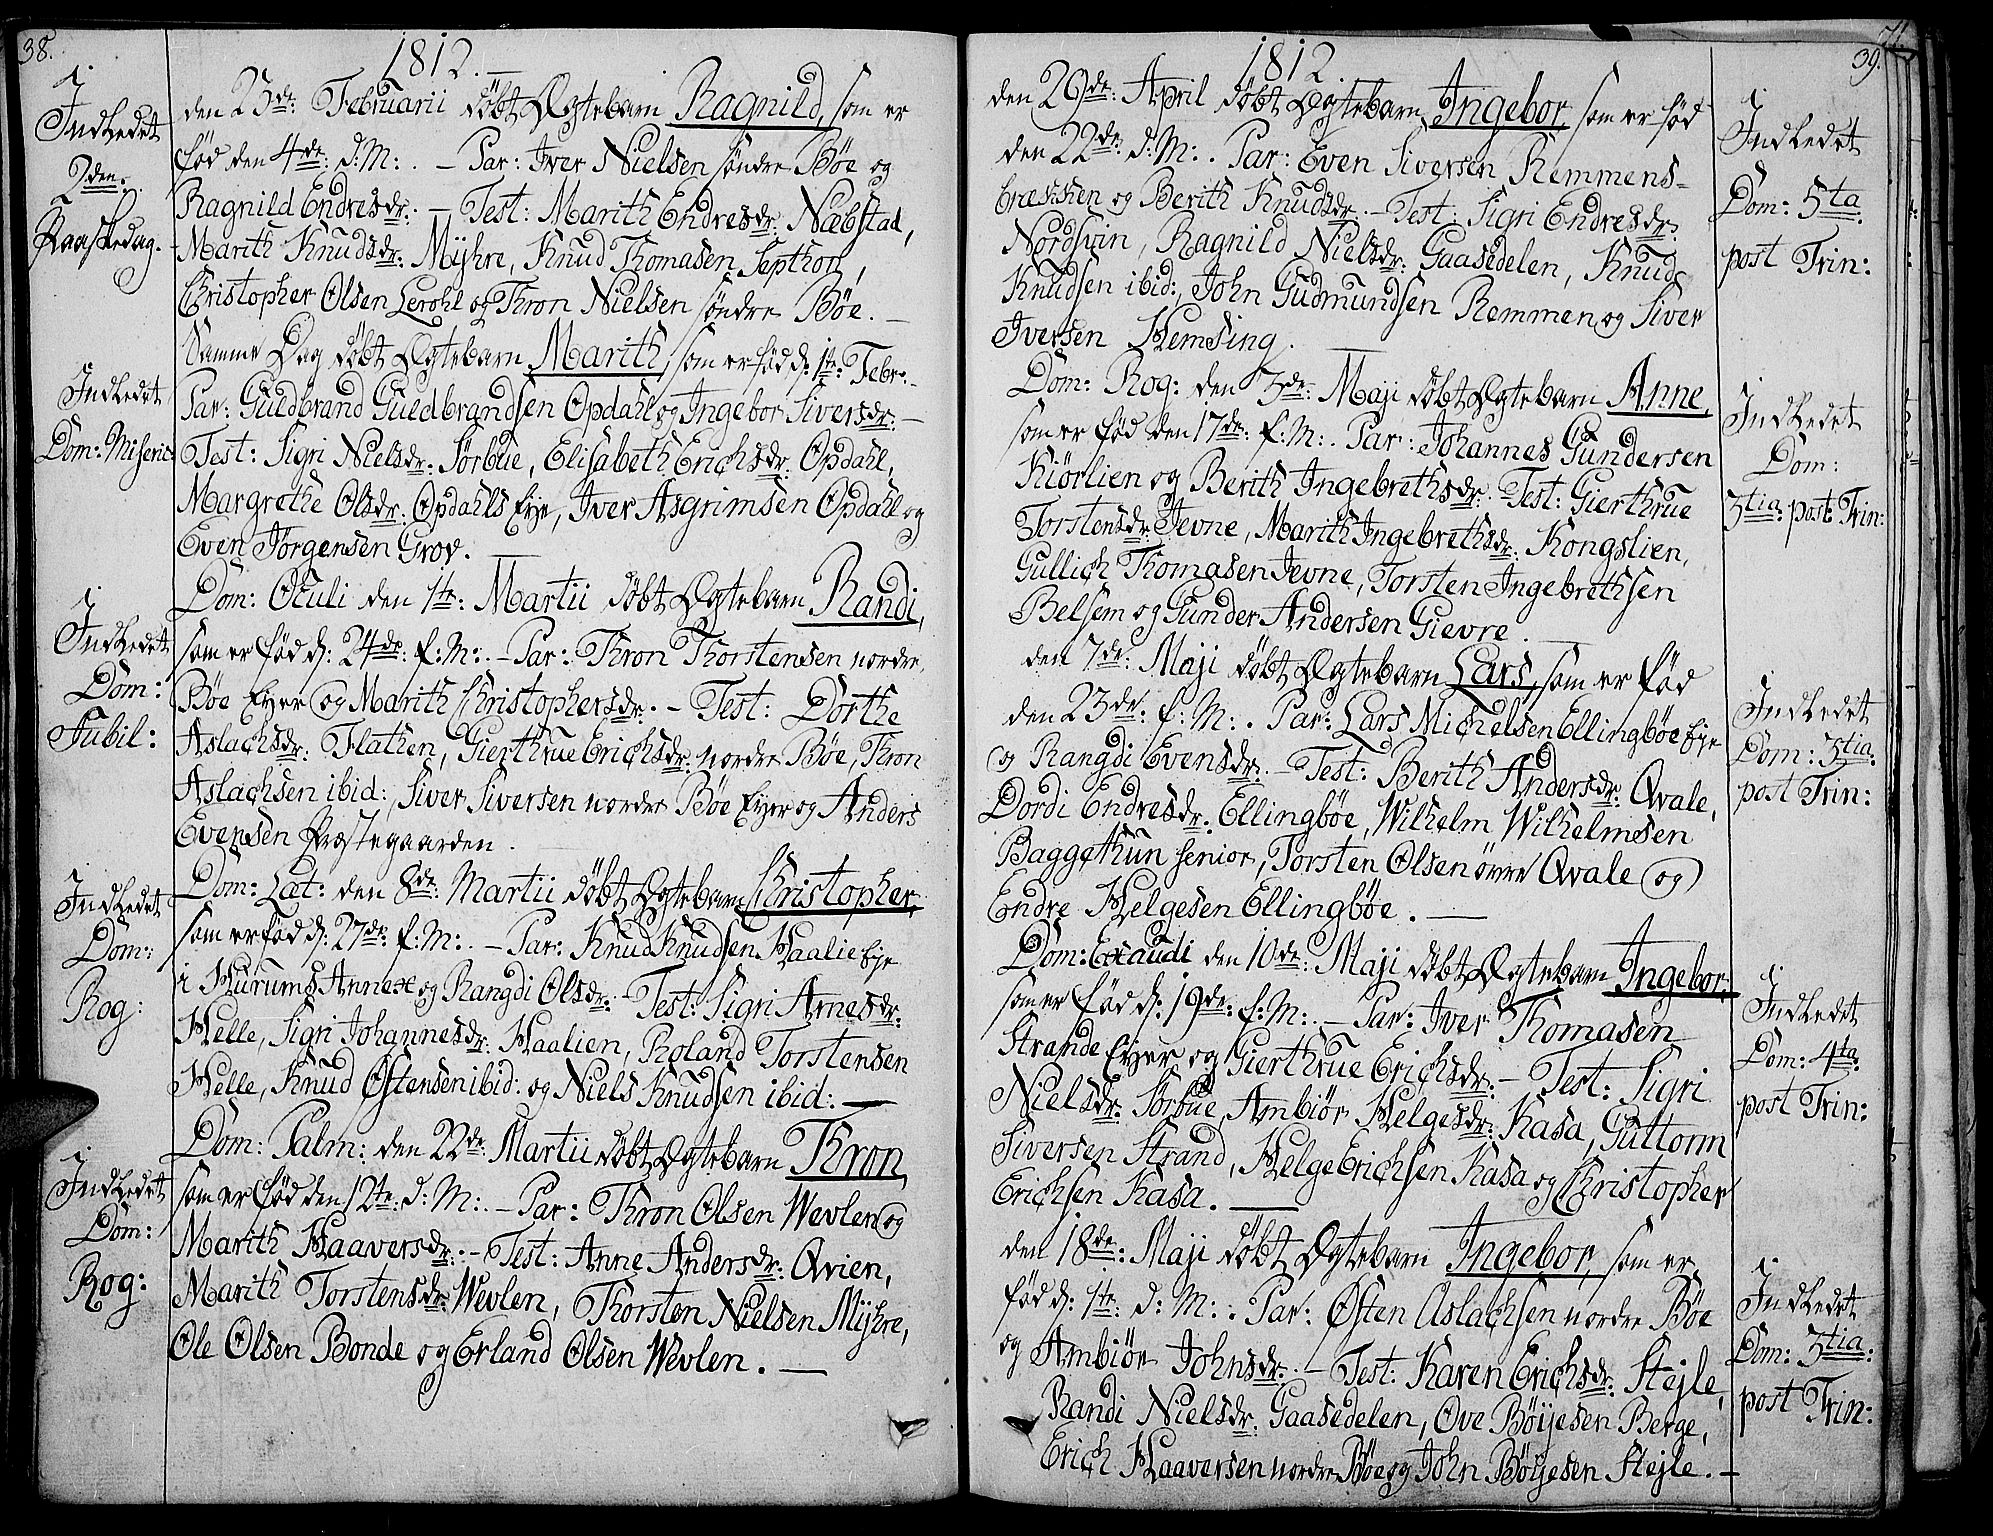 38.
1812.
Indledet
2den
Paaskedag.
den 23de: Februarii döbt Ægtebarn Ragnild, som er
föd den 4de: d: M:. – Par: Iver Nielsen söndre Böe og
Ragnild Endresdr:. – Test: Marith Endresdr: Næbstad,
Marith Knudsdr: Mÿhre, Knud Thomasen Septhon,
Christopher Olsen Lerohl og Thron Nielsen söndre Böe. –
Indledet
Dom: Miseric:
Samme Dag döbt Ægtebarn Marith, som er föd d: 1te: Febr:. –
Par: Guldbrand Guldbrandsen Opdahl og Ingebor Siversdr:. –
Test: Sigri Nielsdr: Sörbüe, Elisabeth Erichsdr: Opdahl,
Margrethe Olsdr: Opdahls Eye, Iver Asgrimsen Opdahl og
Even Jörgensen Grov. –
Indledet
Dom:
Jubil:
Dom: Oculi den 1te: Martii döbt Ægtebarn Randi,
som er föd d: 24de: f: M:. – Par: Thron Thorstensen nordre
Böe Eyer og Marith Christophersdr:. – Test: Dorthe
Aslachsdr: Flathen, Gierthrue Erichsdr: nordre Böe, Thron
Aslachsen ibid:, Siver Siversen nordre Böe Eyer og Anders
Evensen Præstegaarden.
Indledet
Dom:
Rog:
Dom: Læt: den 8de: Martii döbt Ægtebarn Christopher,
som er föd d: 27de: f: M:. – Par: Knud Knudsen Haalie Eye
i Hurums Annex og Rangdi Olsdr:. – Test: Sigri Arnesdr:
Helle, Sigri Johannesdr: Haalien, Roland Torstensen
Helle, Knud Östensen ibid: og Niels Knudsen ibid:. –
Indledet
Dom:
Rog:
Dom: Palm: den 22de: Martii döbt Ægtebarn Thron,
som er föd den 12te: d: M:. – Par: Thron Olsen Wevlen og
Marith Haaversdr:. – Test: Anne Andersdr: Qvien,
Marith Torstensdr: Wevlen, Thorsten Nielsen Mÿhre,
Ole Olsen Bonde og Erland Olsen Wevlen. –
71.
39.
1812.
den 26de: April döbt Ægtebarn Ingebor, som er föd
den 22de: d: M:. Par: Even Siversen Remmens-
bræккen og Berith Knudsdr:. – Test: Sigri Endresdr:
Nordsvin, Ragnild Nielsdr: Gaasedelen, Knud
Knudsen ibid:, John Gudmundsen Remmen og Siver
Iversen Hemsing. –
Indledet
Dom: 5ta
post Trin:
Dom: Rog: den 3de: Maji döbt Ægtebarn Anne,
som er föd den 17de: f: M:. Par: Johannes Gundersen
Kiörlien og Berith Ingebrethsdr:. Test: Gierthrue
Torstensdr: Jevne, Marith Ingebrethsdr: Kongslien,
Gullich Thomasen Jevne, Torsten Ingebrethsen
Belsem og Gunder Andersen Gievre. –
Indledet
Dom:
3tia: post Trin:
den 7de: Maji döbt Ægtebarn Lars, som er föd
den 23de: f: M:. Par: Lars Michelsen Ellingböe Eye
og Rangdi Evensdr:. – Test: Berith Andersdr: Qvale,
Dordi Endresdr: Ellingböe, Wilhelm Wilhelmsen
Baggethun senior, Torsten Olsen övre Qvale og
Endre Helgesen Ellingböe. –
Indledet
Dom: 3tia:
post Trin:
Dom: Exaudi den 10de: Maji döbt Ægtebarn Ingebor,
som er föd d: 19de: f: M:. – Par: Iver Thomasen
Strande Eyer og Gierthrue Erichsdr:. – Test: Sigri
Nielsdr: Sörbüe, Ambiör Helgesdr: Kasa, Guttorm
Siversen Strand, Helge Erichsen Kasa og Christopher
Erichsen Kasa. –
Indledet
Dom: 4ta:
post Trin:
den 18de: Maji döbt Ægtebarn Ingebor, som er
föd d: 1te: d: M:. Par: Östen Aslachsen nordre Böe
og Ambiör Johnsdr:. – Test: Karen Erichsdr: Stejle,
Randi Nielsdr: Gaasedelen, Ove Böÿesen Berge,
Erich Haaversen nordre Böe og John Böÿesen Stejle. –
Indledet
Dom: 3tia:
post Trin: